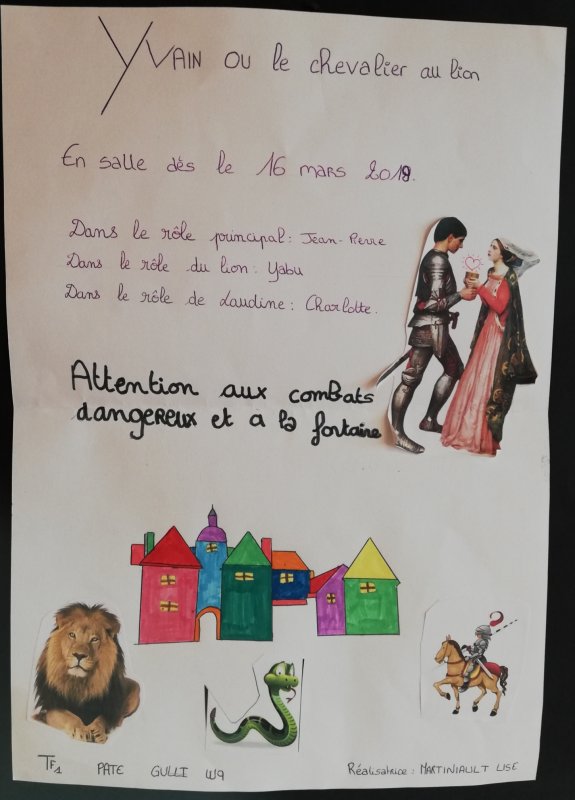 Yvain ou le chevalier au lion
En salle dès le 16 mars 2019.
Dans le rôle principal : Jean-Pierre
Dans le rôle du lion : Yabu
Dans le rôle de Laudine : Charlotte.
Attention aux combats
dangereux et a la fontaine
TF1 PATE GULLI W9 Réalisatrice : MARTINIAULT LISE